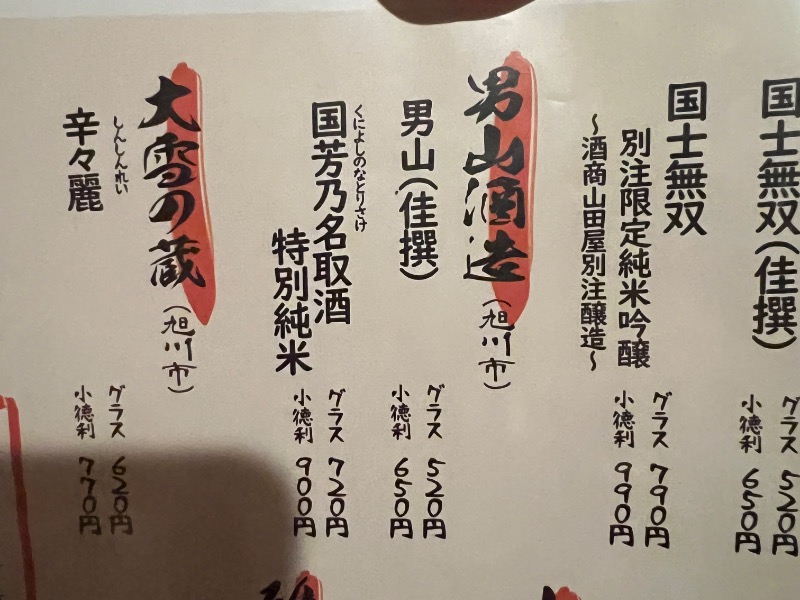 国士無双(佳撰)
グラス 520円
小徳利 650円
国士無双
別注限定純米吟醸
～酒商山田屋別注醸造～
グラス 790円
小徳利 990円
男山酒造(旭川市)
男山(佳撰)
グラス 520円
小徳利 650円
くによしのなとりさけ
国芳乃名取酒
特別純米
グラス 720円
小徳利 900円
大雪の蔵(旭川市)
しんしんれい
辛々麗
グラス 620円
小徳利 770円